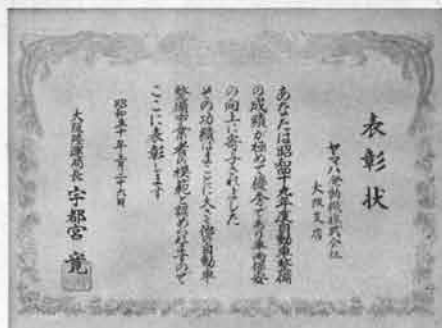 表彰状
ヤマハ発動機株式会社
大阪支店
あなたは昭和四十九年度自動車整備
の成績が極めて優秀であり車両保安
の向上に寄与されました
その功績はまことに大きく他の自動車
整備事業者の模範と認められますので
ここに表彰します
昭和五十年 月二十六日
大阪陸運局長 宇都宮 寛